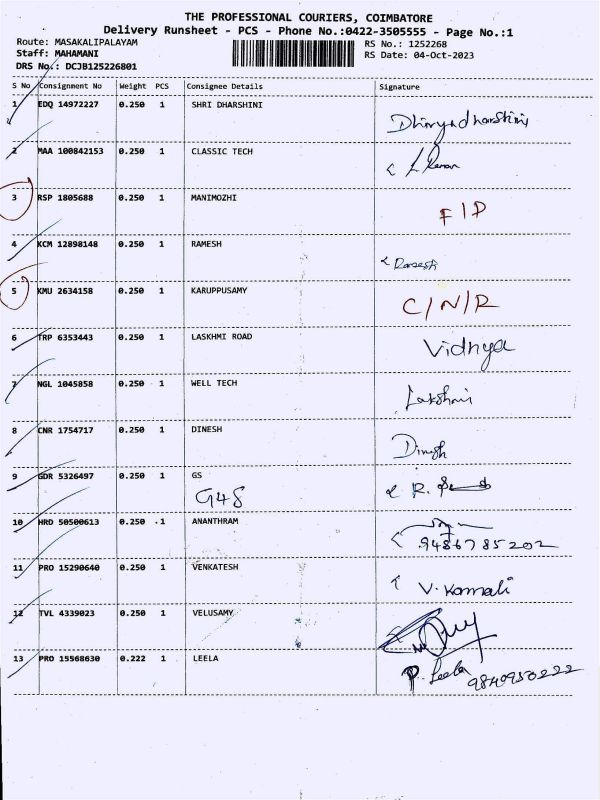 THE PROFESSIONAL COURIERS, COIMBATORE
Delivery Runsheet - PCS - Phone No.:0422-3505555 - Page No.:1
Route: MASAKALIPALAYAM RS No.: 1252268
Staff: MAHAMANI RS Date: 04-Oct-2023
DRS No.: DCJB125226801
S No Consignment No Weight PCS Consignee Details Signature
1 EDQ 14972227 0.250 1 SHRI DHARSHINI Dhivyadharshini
2 MAA 100842153 0.250 1 CLASSIC TECH
3 RSP 1805688 0.250 1 MANIMOZHI F/D
4 KCM 12898148 0.250 1 RAMESH Ramesh
5 KMU 2634158 0.250 1 KARUPPUSAMY C/N/R
6 TRP 6353443 0.250 1 LASKHMI ROAD Vidhya
7 NGL 1045858 0.250 1 WELL TECH Lakshmi
8 CNR 1754717 0.250 1 DINESH Dinesh
9 GDR 5326497 0.250 1 GS R.
G4S
10 HRD 50500613 0.250 .1 ANANTHRAM
9486785202
11 PRO 15290640 0.250 1 VENKATESH V. Kamali
12 TVL 4339023 0.250 1 VELUSAMY
13 PRO 15568630 0.222 1 LEELA P. Leela
9840950222